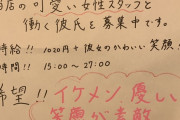 当店の可愛い女性スタッフと
働く彼氏を募集中です。
時給!! 1020円+彼女のかわいい笑顔!!
時間!! 15:00~27:00
希望!! イケメン、優しい
笑顔が素敵